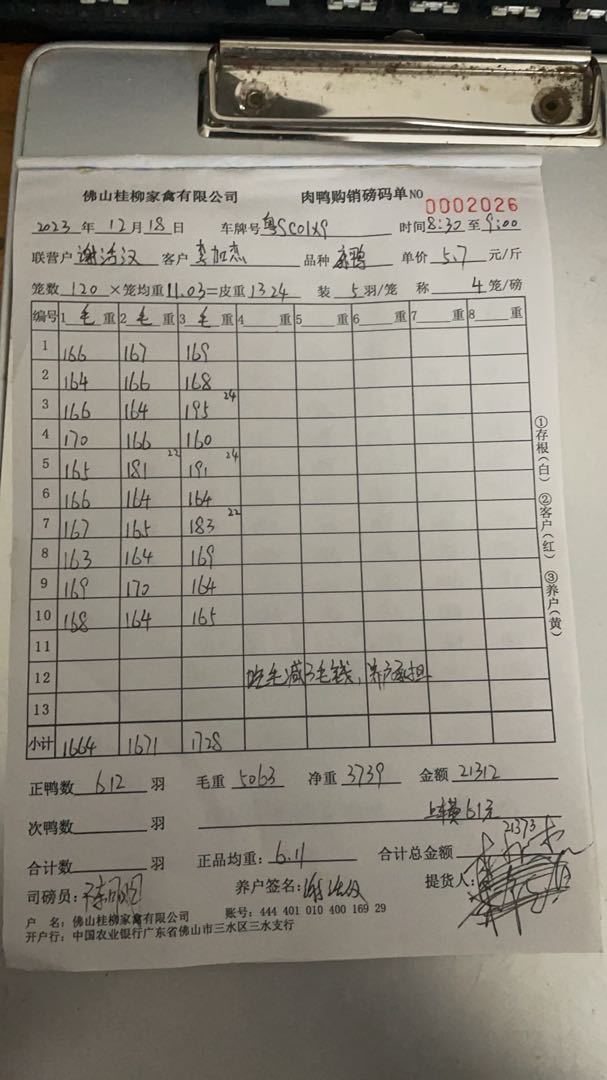 佛山桂柳家禽有限公司 肉鸭购销磅码单 NO 0002026
2023 年 12 月 18 日 车牌号 粤SC01X9 时间 8:30 至 9:00
联营户 谢浩汉 客户 李加杰 品种 麻鸭 单价 5.7 元/斤
笼数 120 ×笼均重 11.03 =皮重 1324 装 5 羽/笼 称 4 笼/磅
编号 1 毛 重 2 毛 重 3 毛 重 4 重 5 重 6 重 7 重 8 重
1 166 167 169
2 164 166 168
3 166 164 195 24
4 170 166 160
5 165 181 22 191 24
6 166 164 164
7 167 165 183 22
8 163 164 169
9 169 170 164
10 168 164 165
11
12 吃毛减3毛钱，养户承担
13
小计 1664 1671 1728
正鸭数 612 羽 毛重 5063 净重 3739 金额 21312
次鸭数 羽 上车费61元
合计数 羽 正品均重: 6.11 合计总金额 21373
司磅员: 养户签名: 提货人:
户 名: 佛山桂柳家禽有限公司 账号: 444 401 010 400 169 29
开户行: 中国农业银行广东省佛山市三水区三水支行
①存根(白) ②客户(红) ③养户(黄)